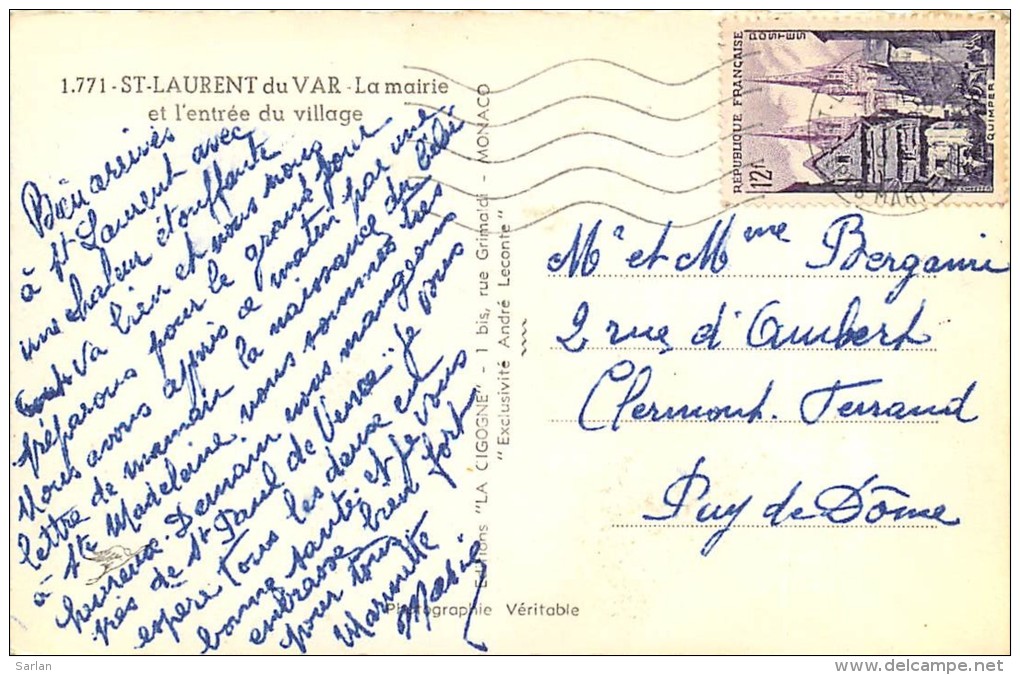 1.771 - ST-LAURENT du VAR - La mairie
et l'entrée du village
Bien arrivés
à St Laurent avec
une chaleur étouffante
tout va bien et nous nous
préparons pour le grand jour
Nous avons appris ce matin par une
lettre de maman la naissance du bébé
à Ste Madeleine nous sommes très
heureux. Demain nous mangeons
près de St Paul de Vence... je vous
espère tous les deux en
bonne santé et je vous
embrasse bien fort
pour tous
Marinette
Editions "LA CIGOGNE" - 1 bis, rue Grimaldi - MONACO
"Exclusivité André Leconte"
Photographie Véritable
RÉPUBLIQUE FRANÇAISE
POSTES
12F
QUIMPER
Mr et Mme Bergami
2 rue d'Aubert
Clermont. Ferrand
Puy de Dôme
Sarlan
www.delcampe.net